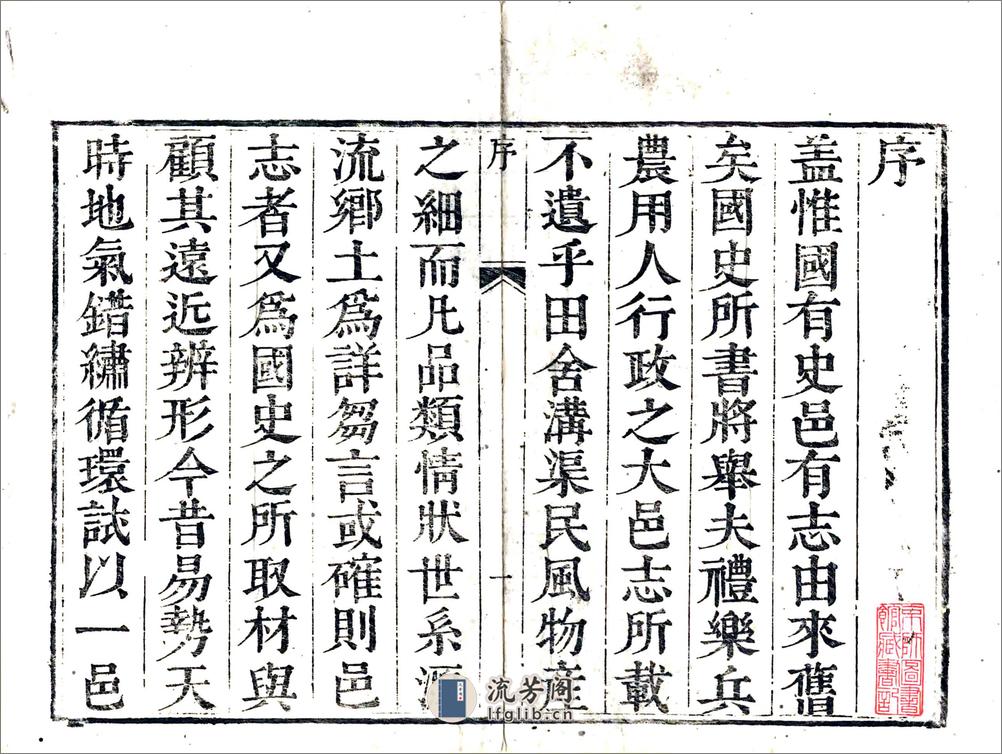 序
盖惟國有史邑有志由來舊
矣國史所書將舉夫禮樂兵
農用人行政之大邑志所載
不遺乎田舍溝渠民風物產
序
一
之細而凡品類情狀世系源
流鄉土爲詳芻言或確則邑
志者又爲國史之所取材與
顧其遠近辨形今昔易勢天
時地氣錯繡循環試以一邑
流芳阁
lfglib.cn